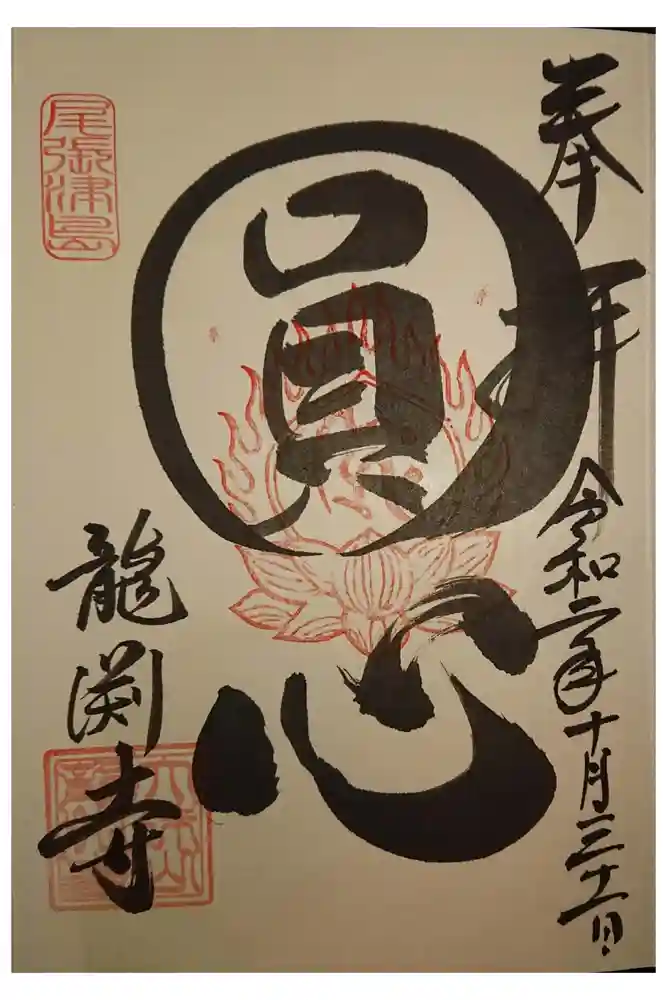 奉拝
令和二年十月三十一日
圓心
尾張津島
龍渕寺